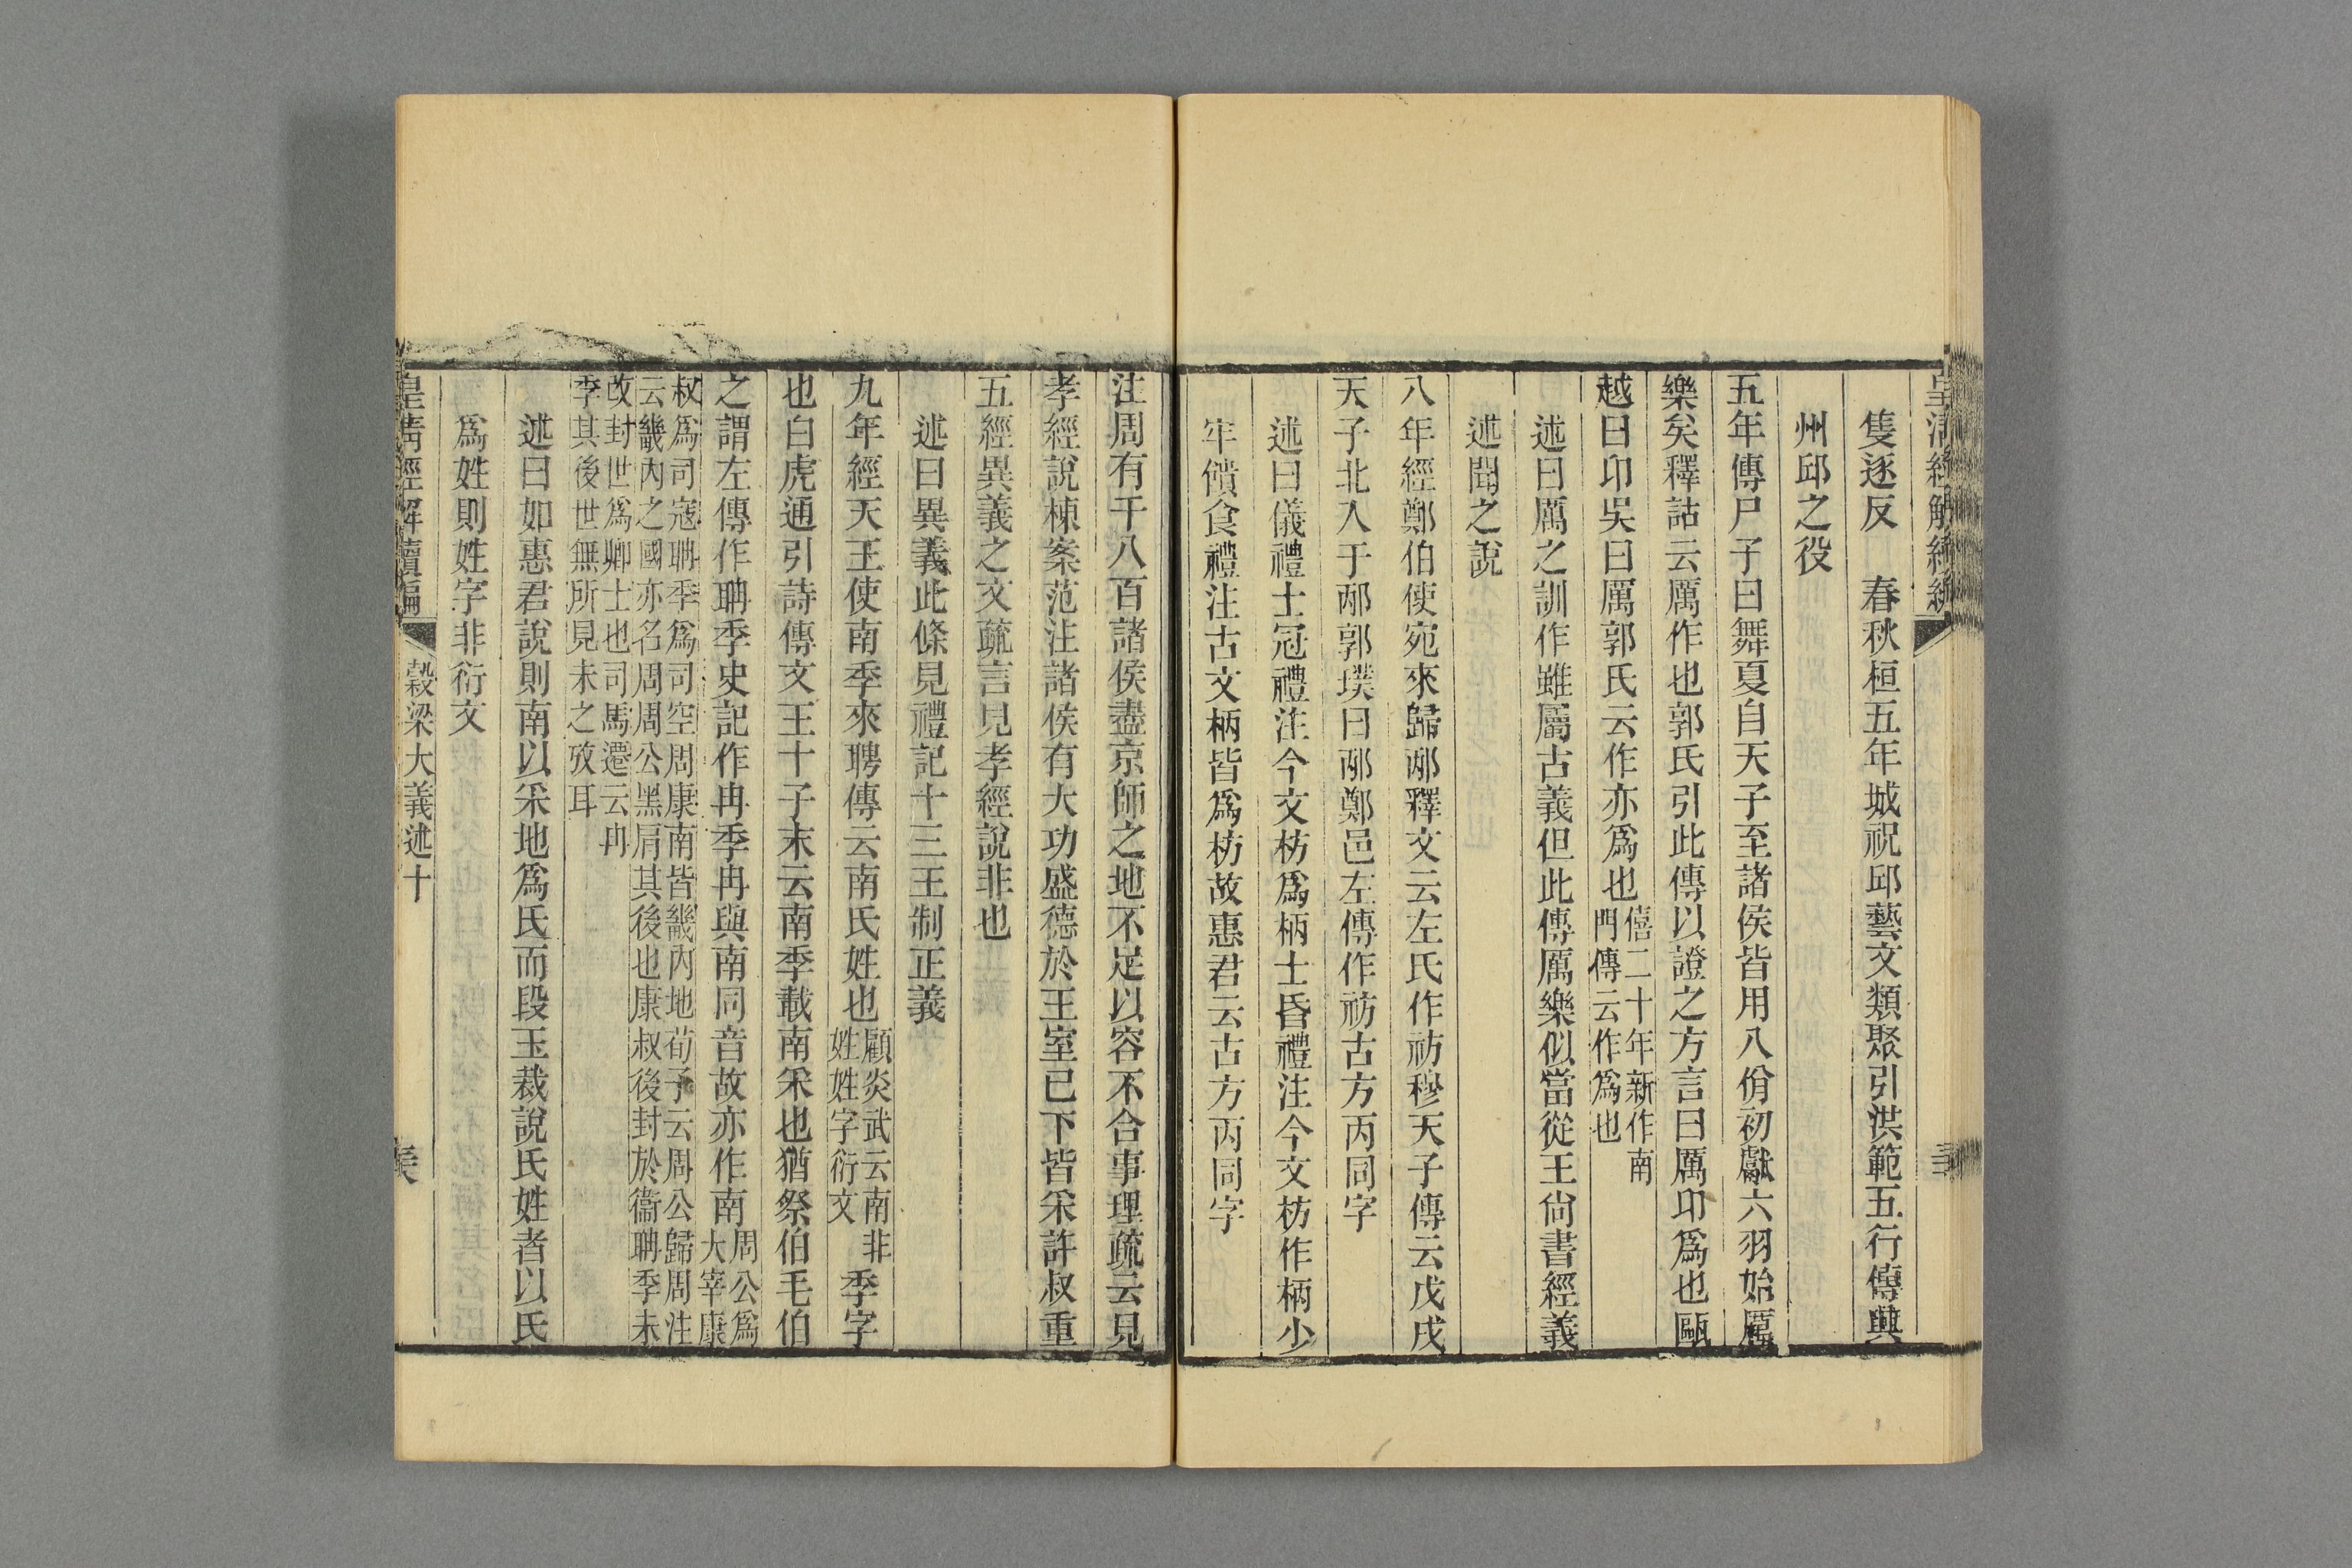 隻逐反　春秋桓五年城祝邱藝文類聚引洪範五行傳與
州邱之役
五年傳尸子曰舞夏自天子至諸侯皆用八佾初獻六羽始厲
樂矣釋詁云厲作也郭氏引此傳以證之方言曰厲卬爲也甌
越曰卬吳曰厲郭氏云作亦爲也僖二十年新作南門傳云作爲也
述曰厲之訓作雖屬古義但此傳厲樂似當從王尙書經義
述聞之說
八年經鄭伯使宛來歸邴釋文云左氏作祊穆天子傳云戊戌
天子北入于邴郭璞曰邴鄭邑左傳作祊古方丙同字
述曰儀禮士冠禮注今文枋爲柄士昏禮注今文枋作柄少
牢饋食禮注古文柄皆爲枋故惠君云古方丙同字
注周有千八百諸侯盡京師之地不足以容不合事理疏云見
孝經說棟案范注諸侯有大功盛德於王室已下皆采許叔重
五經異義之文疏言見孝經說非也
述曰異義此條見禮記十三王制正義
九年經天王使南季來聘傳云南氏姓也顧炎武云南非姓姓字衍文季字
也白虎通引詩傳文王十子末云南季載南采也猶祭伯毛伯
之謂左傳作聃季史記作冉季冉與南同音故亦作南周公爲大宰康
叔爲司寇聃季爲司空周康南皆畿內地荀子云周公歸周注
云畿內之國亦名周周公黑肩其後也康叔後封於衞聃季未
改封世爲卿士也司馬遷云冉
季其後世無所見未之攷耳
述曰如惠君說則南以采地爲氏而段玉裁說氏姓者以氏
爲姓則姓字非衍文
皇淸經解續編
穀梁大義述十